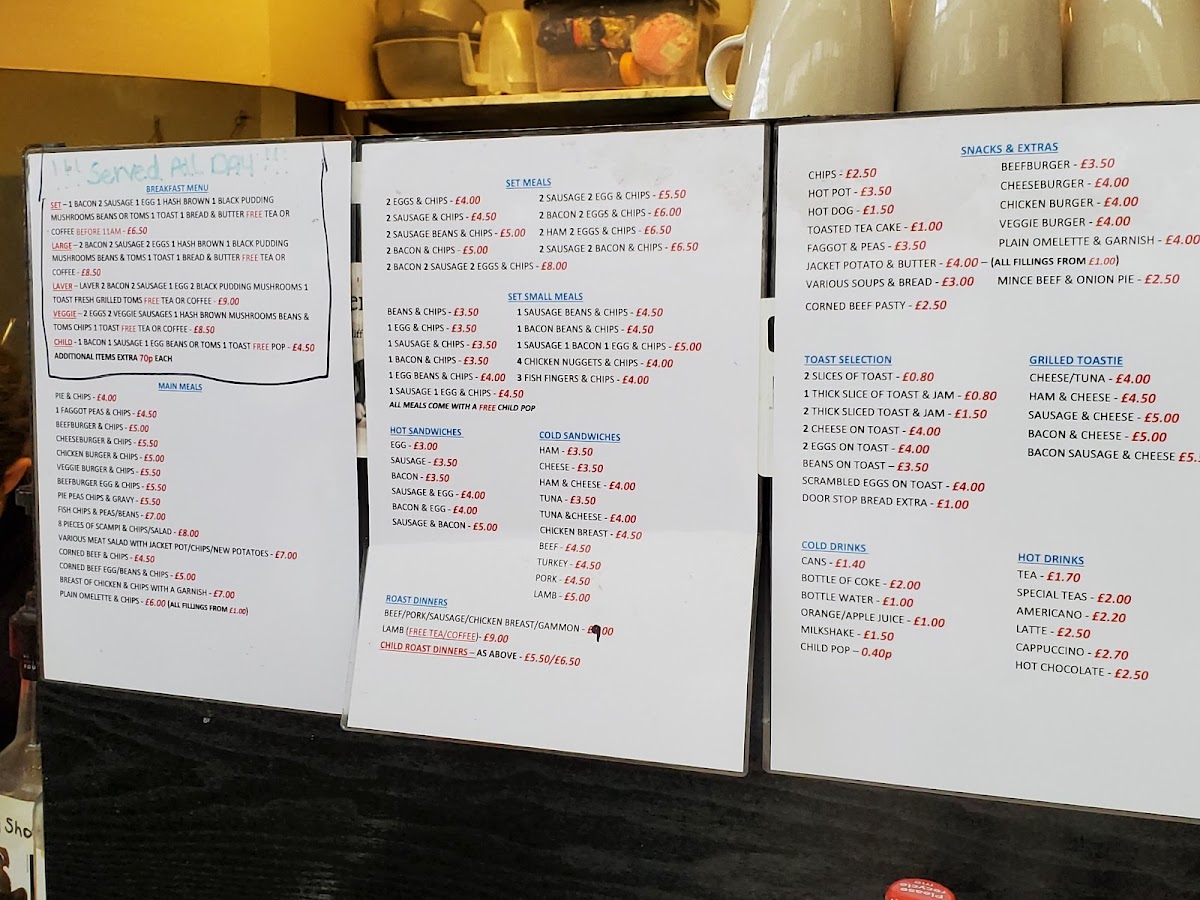 !!! Served ALL DAY !!!
BREAKFAST MENU
SET – 1 BACON 2 SAUSAGE 1 EGG 1 HASH BROWN 1 BLACK PUDDING
MUSHROOMS BEANS OR TOMS 1 TOAST 1 BREAD & BUTTER FREE TEA OR
COFFEE BEFORE 11AM - £6.50
LARGE – 2 BACON 2 SAUSAGE 2 EGGS 1 HASH BROWN 1 BLACK PUDDING
MUSHROOMS BEANS & TOMS 1 TOAST 1 BREAD & BUTTER FREE TEA OR
COFFEE - £8.50
LAVER – LAVER 2 BACON 2 SAUSAGE 1 EGG 2 BLACK PUDDING MUSHROOMS 1
TOAST FRESH GRILLED TOMS FREE TEA OR COFFEE - £9.00
VEGGIE – 2 EGGS 2 VEGGIE SAUSAGES 1 HASH BROWN MUSHROOMS BEANS &
TOMS CHIPS 1 TOAST FREE TEA OR COFFEE - £8.50
CHILD - 1 BACON 1 SAUSAGE 1 EGG BEANS OR TOMS 1 TOAST FREE POP - £4.50
ADDITIONAL ITEMS EXTRA 70p EACH
MAIN MEALS
PIE & CHIPS - £4.00
1 FAGGOT PEAS & CHIPS - £4.50
BEEFBURGER & CHIPS - £5.00
CHEESEBURGER & CHIPS - £5.50
CHICKEN BURGER & CHIPS - £5.00
VEGGIE BURGER & CHIPS - £5.50
BEEFBURGER EGG & CHIPS - £5.50
PIE PEAS CHIPS & GRAVY - £5.50
FISH CHIPS & PEAS/BEANS - £7.00
8 PIECES OF SCAMPI & CHIPS/SALAD - £8.00
VARIOUS MEAT SALAD WITH JACKET POT/CHIPS/NEW POTATOES - £7.00
CORNED BEEF & CHIPS - £4.50
CORNED BEEF EGG/BEANS & CHIPS - £5.00
BREAST OF CHICKEN & CHIPS WITH A GARNISH - £7.00
PLAIN OMELETTE & CHIPS - £6.00 (ALL FILLINGS FROM £1.00)
SET MEALS
2 EGGS & CHIPS - £4.00
2 SAUSAGE & CHIPS - £4.50
2 SAUSAGE BEANS & CHIPS - £5.00
2 BACON & CHIPS - £5.00
2 BACON 2 SAUSAGE 2 EGGS & CHIPS - £8.00
2 SAUSAGE 2 EGG & CHIPS - £5.50
2 BACON 2 EGGS & CHIPS - £6.00
2 HAM 2 EGGS & CHIPS - £6.50
2 SAUSAGE 2 BACON & CHIPS - £6.50
SET SMALL MEALS
BEANS & CHIPS - £3.50
1 EGG & CHIPS - £3.50
1 SAUSAGE & CHIPS - £3.50
1 BACON & CHIPS - £3.50
1 EGG BEANS & CHIPS - £4.00
1 SAUSAGE 1 EGG & CHIPS - £4.50
1 SAUSAGE BEANS & CHIPS - £4.50
1 BACON BEANS & CHIPS - £4.50
1 SAUSAGE 1 BACON 1 EGG & CHIPS - £5.00
4 CHICKEN NUGGETS & CHIPS - £4.00
3 FISH FINGERS & CHIPS - £4.00
ALL MEALS COME WITH A FREE CHILD POP
HOT SANDWICHES
EGG - £3.00
SAUSAGE - £3.50
BACON - £3.50
SAUSAGE & EGG - £4.00
BACON & EGG - £4.00
SAUSAGE & BACON - £5.00
COLD SANDWICHES
HAM - £3.50
CHEESE - £3.50
HAM & CHEESE - £4.00
TUNA - £3.50
TUNA &CHEESE - £4.00
CHICKEN BREAST - £4.50
BEEF - £4.50
TURKEY - £4.50
PORK - £4.50
LAMB - £5.00
ROAST DINNERS
BEEF/PORK/SAUSAGE/CHICKEN BREAST/GAMMON - £9.00
LAMB (FREE TEA/COFFEE)- £9.00
CHILD ROAST DINNERS – AS ABOVE - £5.50/£6.50
SNACKS & EXTRAS
CHIPS - £2.50
HOT POT - £3.50
HOT DOG - £1.50
TOASTED TEA CAKE - £1.00
FAGGOT & PEAS - £3.50
JACKET POTATO & BUTTER - £4.00 – (ALL FILLINGS FROM £1.00)
VARIOUS SOUPS & BREAD - £3.00
CORNED BEEF PASTY - £2.50
BEEFBURGER - £3.50
CHEESEBURGER - £4.00
CHICKEN BURGER - £4.00
VEGGIE BURGER - £4.00
PLAIN OMELETTE & GARNISH - £4.00
MINCE BEEF & ONION PIE - £2.50
TOAST SELECTION
2 SLICES OF TOAST - £0.80
1 THICK SLICE OF TOAST & JAM - £0.80
2 THICK SLICED TOAST & JAM - £1.50
2 CHEESE ON TOAST - £4.00
2 EGGS ON TOAST - £4.00
BEANS ON TOAST – £3.50
SCRAMBLED EGGS ON TOAST - £4.00
DOOR STOP BREAD EXTRA - £1.00
GRILLED TOASTIE
CHEESE/TUNA - £4.00
HAM & CHEESE - £4.50
SAUSAGE & CHEESE - £5.00
BACON & CHEESE - £5.00
BACON SAUSAGE & CHEESE £5.
COLD DRINKS
CANS - £1.40
BOTTLE OF COKE - £2.00
BOTTLE WATER - £1.00
ORANGE/APPLE JUICE - £1.00
MILKSHAKE - £1.50
CHILD POP – 0.40p
HOT DRINKS
TEA - £1.70
SPECIAL TEAS - £2.00
AMERICANO - £2.20
LATTE - £2.50
CAPPUCCINO - £2.70
HOT CHOCOLATE - £2.50
Sho
Please
recycle
me